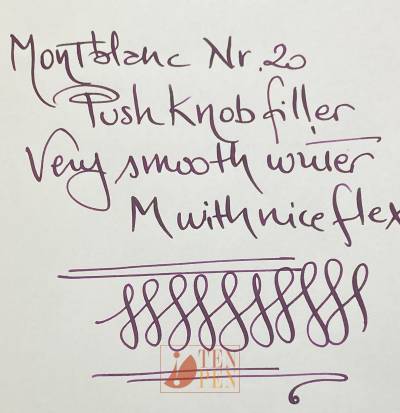 Montblanc Nr. 20
Push Knob filler
Very smooth writer
M with nice flex
TEN
PEN